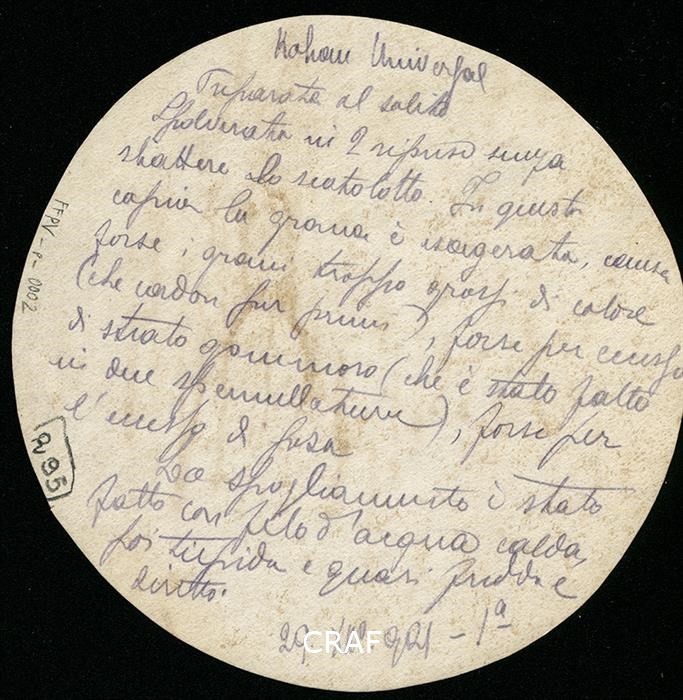 Kohan Universal
Preparata al solito
Spolverata in 2 riprese senza
sbattere lo scatolotto. In questa
copia la grana è esagerata, causa
forse i grani troppo grossi di colore
(che cadon fur primi), forse per eccesso
di strato gommoso (che è stato fatto
in due spennellature), forse per
l'eccesso di posa
Lo spogliamento è stato
fatto con filo d'acqua calda,
poi tiepida e quasi fredda e
diretto.
29 921 - 1ª
FFPV-P-0002
9295
CRAF